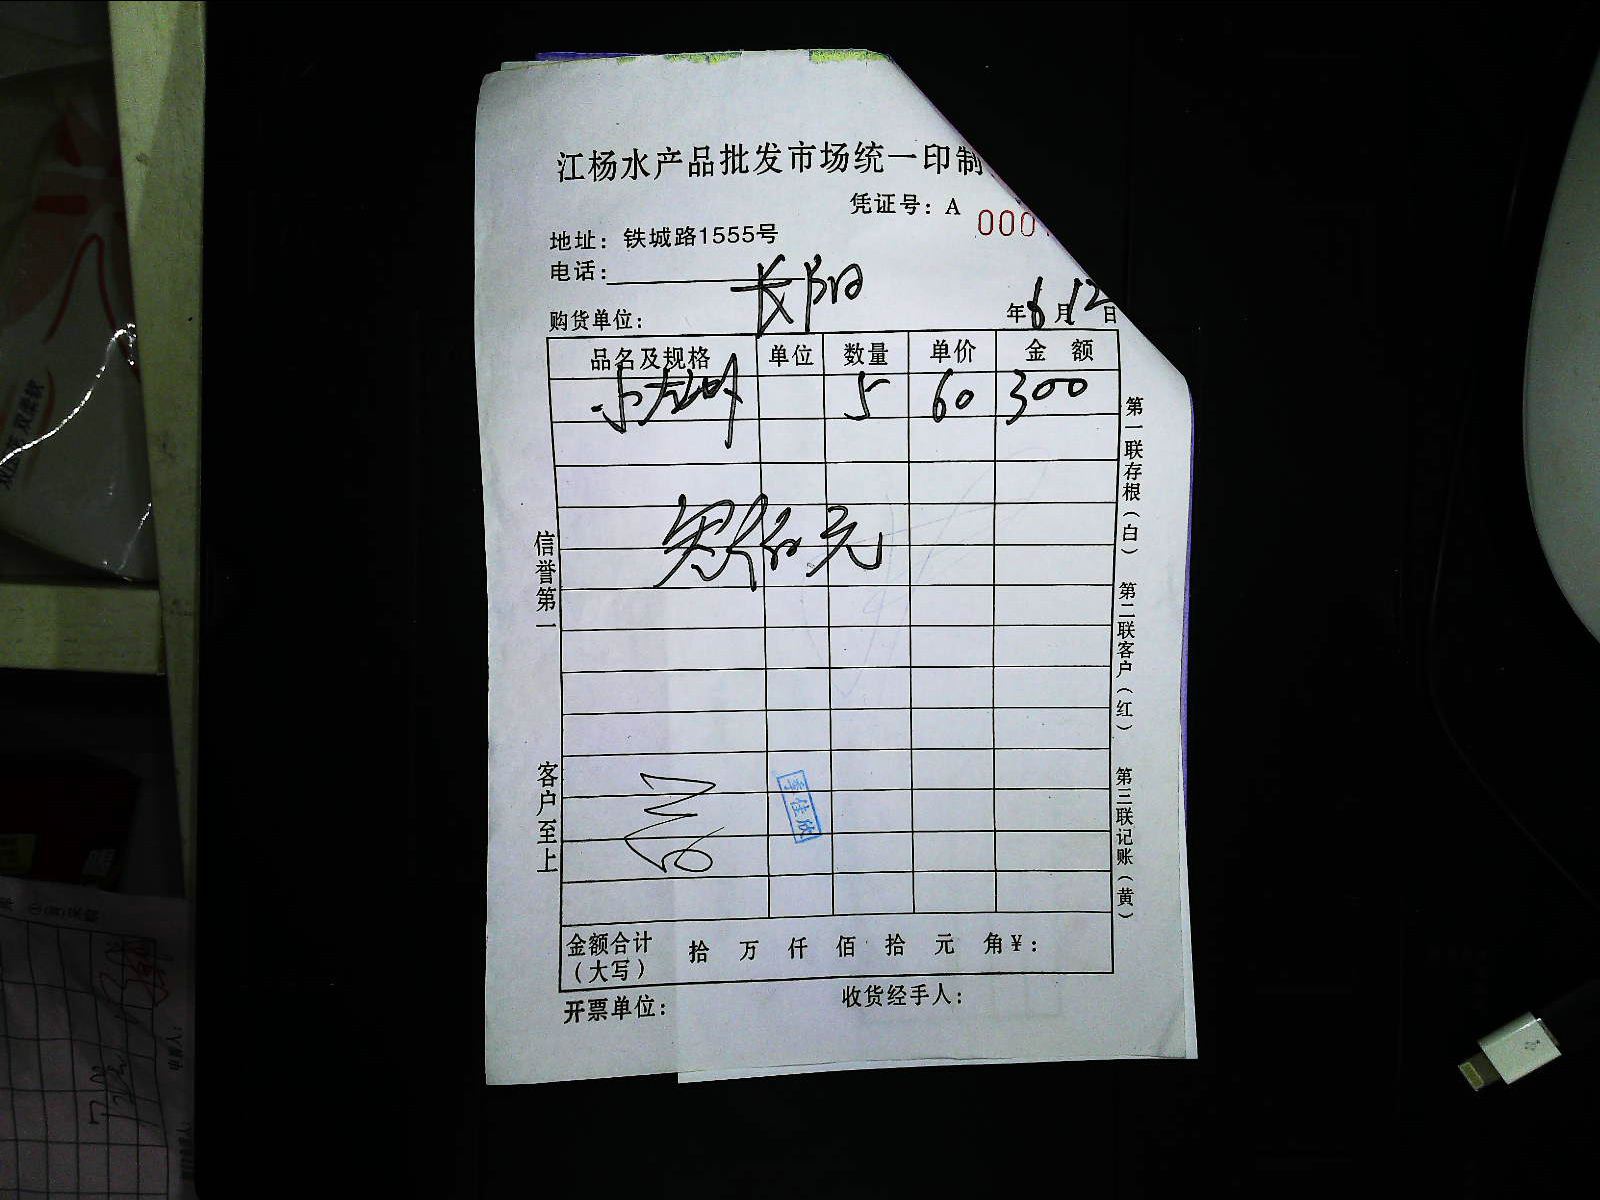 江杨水产品批发市场统一印制
凭证号：A 000
地址：铁城路1555号
电话：
长阳
购货单位：
年6月12日
品名及规格 单位 数量 单价 金额
5 60 300
佰元
信誉第一
客户至上
第一联存根（白）
第二联客户（红）
第三联记账（黄）
李佳欣
金额合计（大写） 拾 万 仟 佰 拾 元 角 ¥：
开票单位：
收货经手人：